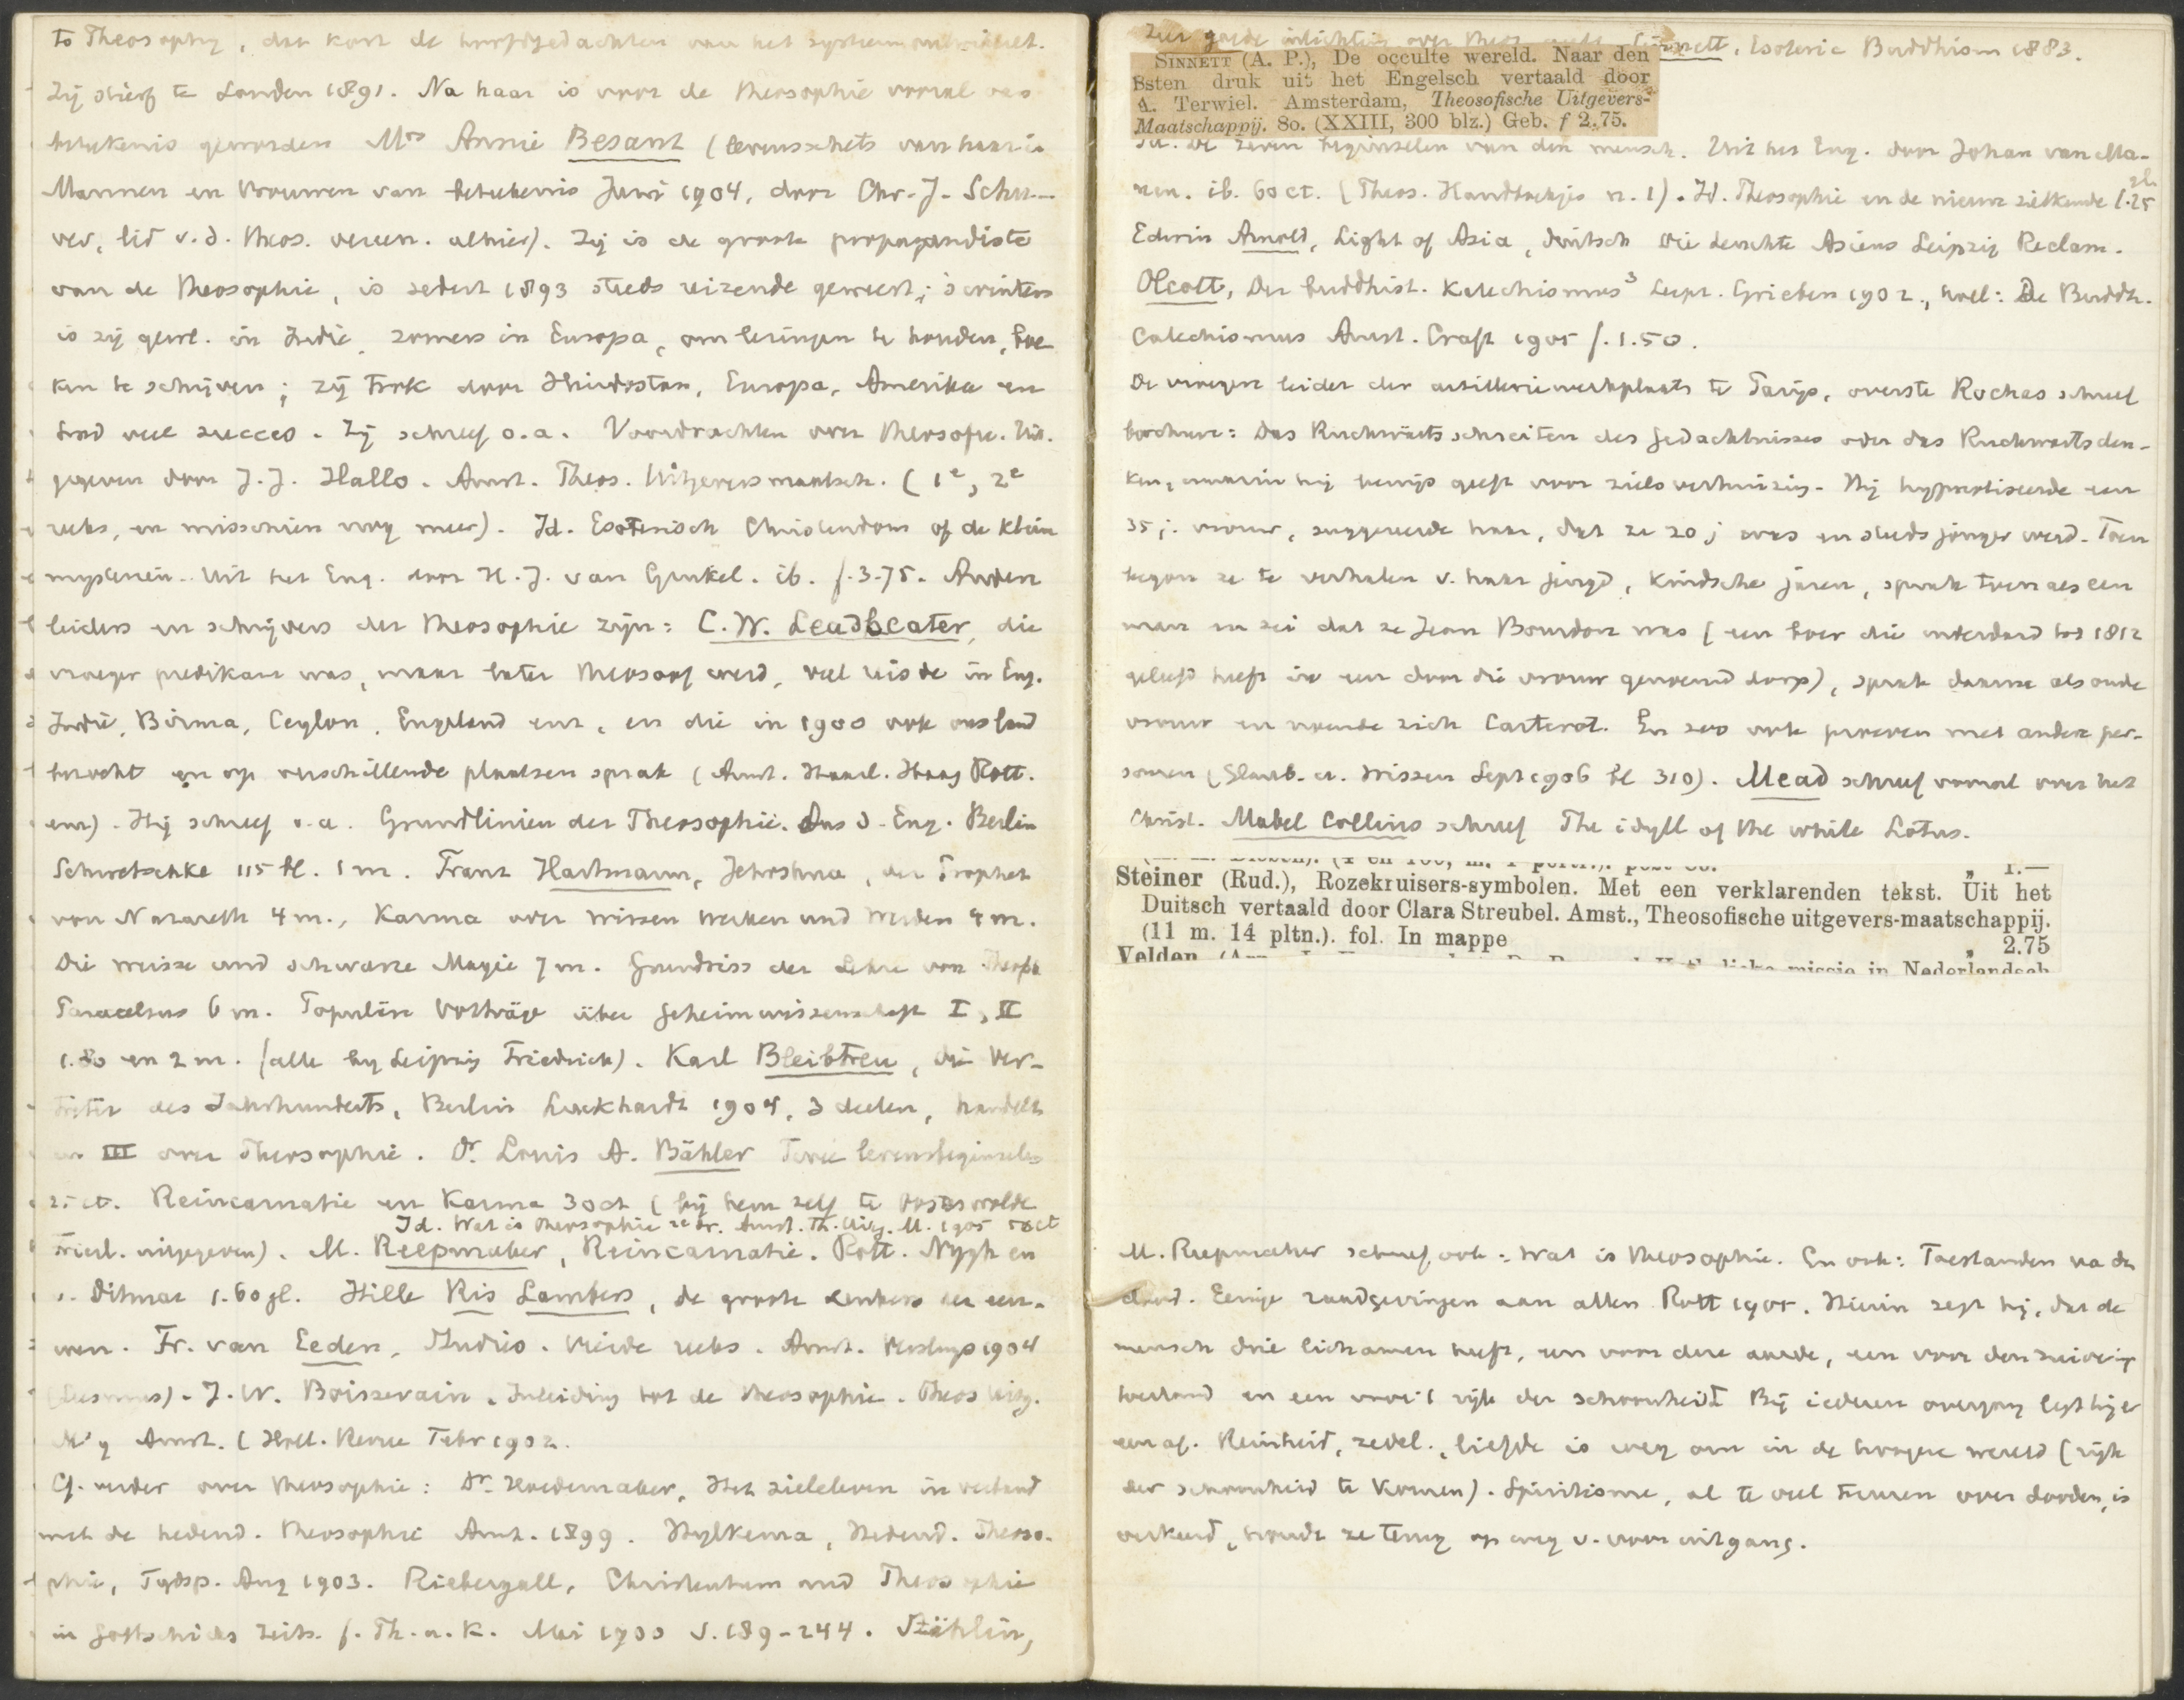 to Theosophy, dat kort de hoofdgedachten van het systeem ontwikkelt.
Zij stierf te Londen 1891. Na haar is voor de theosophie vooral van
betekenis geworden Mrs Annie Besant (levensschets van haar in
Mannen en Vrouwen van betekenis Juni 1904, door Chr. J. Schu-
ver, lid v.d. theos. vereen. alhier). Zij is de groote propagandiste
van de theosophie, is sedert 1893 steeds reizende geweest; 's winters
is zij gew. in Indië, zomers in Europa, om lezingen te houden, boe
ken te schrijven; zij trok door Hindostan, Europa, Amerika en
had veel succes. Zij schreef o.a. Voordrachten over theosofie. Uit-
gegeven door J.J. Hallo. Amst. Theos. Uitgeversmaatsch. (1e, 2e
reeks, en misschien nog meer). Id. Esoterisch Christendom of de kleine
mysteriën. Uit het Eng. door H.J. van Ginkel. ib. f.3.75. Andere
leiders en schrijvers der theosophie zijn: C.W. Leadbeater, die
vroeger predikant was, maar later theosoof werd, veel reisde in Eng.
Indië, Birma, Ceylon, Engeland enz., en die in 1900 ook ons land
bezocht en op verschillende plaatsen sprak (Amst. Haarl. Haag Rott.
enz). Hij schreef o.a. Grundlinien der Theosophie. Aus d. Eng. Berlin
Schwetschke 115 bl. 1 m. Franz Hartmann, Jehoshua, der Prophet
von Nazareth 4 m., Karma oder Wissen Werken und Werden 4 m.
Die weisse und schwarze Magie 7 m. Grundriss der Lehre von Theoph.
Paracelsus 6 m. Populäre Vorträge über Geheimwissenschaft I, II
1.80 en 2 m. (alle bij Leipzig Friedrich). Karl Bleibtreu, die Ver-
treter des Jahrhunderts, Berlin Luckhardt 1904, 3 deelen, handelt
in III over Theosophie. Dr. Louis A. Bähler Twee levensbeginselen
25 ct. Reincarnatie en Karma 30 ct (bij hem zelf te Oosterwolde
Id. Wat is theosophie 2e dr. Amst. Th. Uitg. M. 1905
Friesl. uitgegeven). M. Reepmaker, Reincarnatie. Rott. Nijgh en
v. Ditmar 1.60 gl. Hille Ris Lambers, de groote denkers der eeu-
wen. Fr. van Eeden, Studies. Vierde reeks. Amst. Versluys 1904
J.W. Boissevain. Inleiding tot de theosophie. Theos Uitg.
Mij Amst. (Holl. Revue Febr 1902.
Cf. verder over theosophie: Dr. Hoedemaker, Het zieleleven in verband
met de hedend. theosophie Amst. 1899. Hylkema, Hedend. Theoso-
phie, Tydsp. Aug 1903. Niebergall, Christentum und Theosophie
in Gottschicks Zeits. f. Th. u. K. Mai 1900 S. 189-244. Stählin,
Zeer goede inlichting over theos. Sinnett, Esoteric Buddhism 1883.
SINNETT (A. P.), De occulte wereld. Naar den
8sten druk uit het Engelsch vertaald door
A. Terwiel. Amsterdam, Theosofische Uitgevers-
Maatschappij. 8o. (XXIII, 300 blz.) Geb. f 2.75.
Id. De zeven beginselen van den mensch. Uit het Eng. door Johan van Ma-
nen. ib. 60 ct. (Theos. Handboekjes n. 1). Id. Theosophie en de nieuwe zielkunde 1.25 gl.
Edwin Arnold, Light of Asia, duitsch die Leuchte Asiens Leipzig Reclam.
Olcott, Der buddhist. Katechismus3 Leipz. Grieben 1902., holl: De Buddh.
Catechismus Amst. Craft 1905 f. 1.50.
De vroegere leider der artilleriewerkplaats te Parijs, overste Rochas schreef
brochure: Das Rückwärtsschreiten des Gedächtnisses oder das Rückwärtsden-
ken, waarin hij bewijs geeft voor zielsverhuizing. Hij hypnotiseerde een
35 j. vrouw, suggereerde haar, dat ze 20 j was en steeds jonger werd. Toen
begon ze te verhalen v. haar jeugd, kindsche jaren, sprak toen als een
man en zei dat ze Jean Bourdon was (een boer die inderdaad tot 1812
geleefd heeft in een door die vrouw genoemd dorp), sprak daarna als oude
vrouw en noemde zich Carterot. En zoo ook proeven met andere per-
sonen (Glaub. u. Wissen Sept 1906 bl 310). Mead schreef vooral over het
Christ. Mabel Collins schreef The idyll of the white Lotus.
1.—
Steiner (Rud.), Rozekruisers-symbolen. Met een verklarenden tekst. Uit het
Duitsch vertaald door Clara Streubel. Amst., Theosofische uitgevers-maatschappij.
(11 m. 14 pltn.). fol. In mappe „ 2.75
Velden missie in Nederlandsch
M. Reepmaker schreef ook: Wat is theosophie. En ook: Toestanden na den
dood. Eenige raadgevingen aan allen Rott 1905. Hierin zegt hij, dat de
mensch drie lichamen heeft, een voor deze aarde, een voor den
toestand en een voor 't rijk der schoonheid. Bij iederen overgang legt hij er
een af. Reinheid, zedel., liefde is weg om in de hoogere wereld (rijk
der schoonheid te komen). Spiritisme, al te veel treuren over dooden, is
verkeerd, houdt ze terug op weg v. vooruitgang.